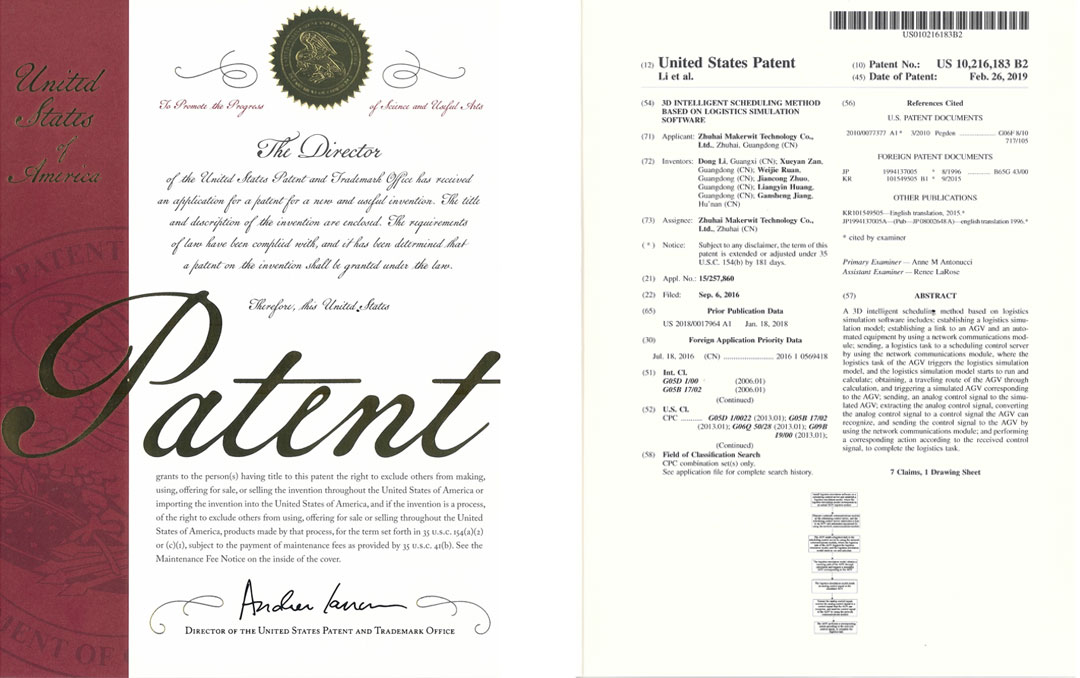 United
States
of
America
To Promote the Progress
of Science and Useful Arts
The Director
of the United States Patent and Trademark Office has received
an application for a patent for a new and useful invention. The title
and description of the invention are enclosed. The requirements
of law have been complied with, and it has been determined that
a patent on the invention shall be granted under the law.
Therefore, this United States
Patent
grants to the person(s) having title to this patent the right to exclude others from making,
using, offering for sale, or selling the invention throughout the United States of America or
importing the invention into the United States of America, and if the invention is a process,
of the right to exclude others from using, offering for sale or selling throughout the United
States of America, products made by that process, for the term set forth in 35 U.S.C. 154(a)(2)
or (c)(1), subject to the payment of maintenance fees as provided by 35 U.S.C. 41(b). See the
Maintenance Fee Notice on the inside of the cover.
DIRECTOR OF THE UNITED STATES PATENT AND TRADEMARK OFFICE
US010216183B2
(12) United States Patent
Li et al.
(10) Patent No.: US 10,216,183 B2
(45) Date of Patent: Feb. 26, 2019
(54) 3D INTELLIGENT SCHEDULING METHOD
BASED ON LOGISTICS SIMULATION
SOFTWARE
(71) Applicant: Zhuhai Makerwit Technology Co.,
Ltd., Zhuhai, Guangdong (CN)
(72) Inventors: Dong Li, Guangxi (CN); Xueyan Zan,
Guangdong (CN); Weijie Ruan,
Guangdong (CN); Jiancong Zhuo,
Guangdong (CN); Liangyin Huang,
Guangdong (CN); Gansheng Jiang,
Hu'nan (CN)
(73) Assignee: Zhuhai Makerwit Technology Co.,
Ltd., Zhuhai (CN)
( * ) Notice: Subject to any disclaimer, the term of this
patent is extended or adjusted under 35
U.S.C. 154(b) by 181 days.
(21) Appl. No.: 15/257,860
(22) Filed: Sep. 6, 2016
(65) Prior Publication Data
US 2018/0017964 A1 Jan. 18, 2018
(30) Foreign Application Priority Data
Jul. 18, 2016 (CN) ........................ 2016 1 0569418
(51) Int. Cl.
G05D 1/00 (2006.01)
G05B 17/02 (2006.01)
(Continued)
(52) U.S. Cl.
CPC ......... G05D 1/0022 (2013.01); G05B 17/02
(2013.01); G06Q 50/28 (2013.01); G09B
19/00 (2013.01);
(Continued)
(58) Field of Classification Search
CPC combination set(s) only.
See application file for complete search history.
(56) References Cited
U.S. PATENT DOCUMENTS
2010/0077377 A1* 3/2010 Pegden ................ G06F 8/10
717/105
FOREIGN PATENT DOCUMENTS
JP 1994137005 * 8/1996 ........... B65G 43/00
KR 101549505 B1 * 9/2015
OTHER PUBLICATIONS
KR101549505—English translation, 2015.*
JP1994137005A—(Pub—JP08002648A)—english translation 1996.*
* cited by examiner
Primary Examiner — Anne M Antonucci
Assistant Examiner — Renee LaRose
(57) ABSTRACT
A 3D intelligent scheduling method based on logistics
simulation software includes: establishing a logistics simu-
lation model; establishing a link to an AGV and an auto-
mated equipment by using a network communications mod-
ule; sending, a logistics task to a scheduling control server
by using the network communications module, where the
logistics task of the AGV triggers the logistics simulation
model, and the logistics simulation model starts to run and
calculate; obtaining, a traveling route of the AGV through
calculation, and triggering a simulated AGV corresponding
to the AGV; sending, an analog control signal to the simu-
lated AGV; extracting the analog control signal, converting
the analog control signal to a control signal the AGV can
recognize, and sending the control signal to the AGV by
using the network communications module; and performing
a corresponding action according to the received control
signal, to complete the logistics task.
7 Claims, 1 Drawing Sheet